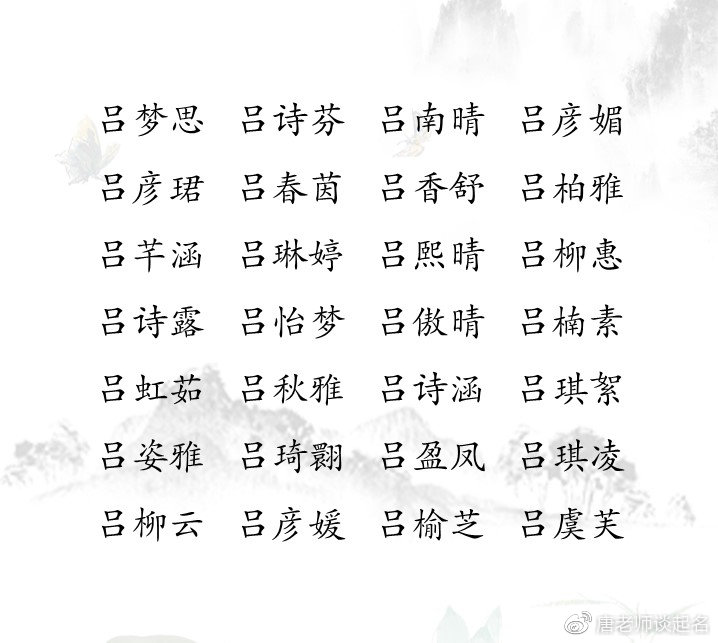 吕梦思 吕诗芬 吕南晴 吕彦媚
吕彦珺 吕春茵 吕香舒 吕柏雅
吕芊涵 吕琳婷 吕熙晴 吕柳惠
吕诗露 吕怡梦 吕傲晴 吕楠素
吕虹茹 吕秋雅 吕诗涵 吕琪絮
吕姿雅 吕琦翾 吕盈凤 吕琪凌
吕柳云 吕彦媛 吕榆芝 吕虞芙
唐老师谈起名